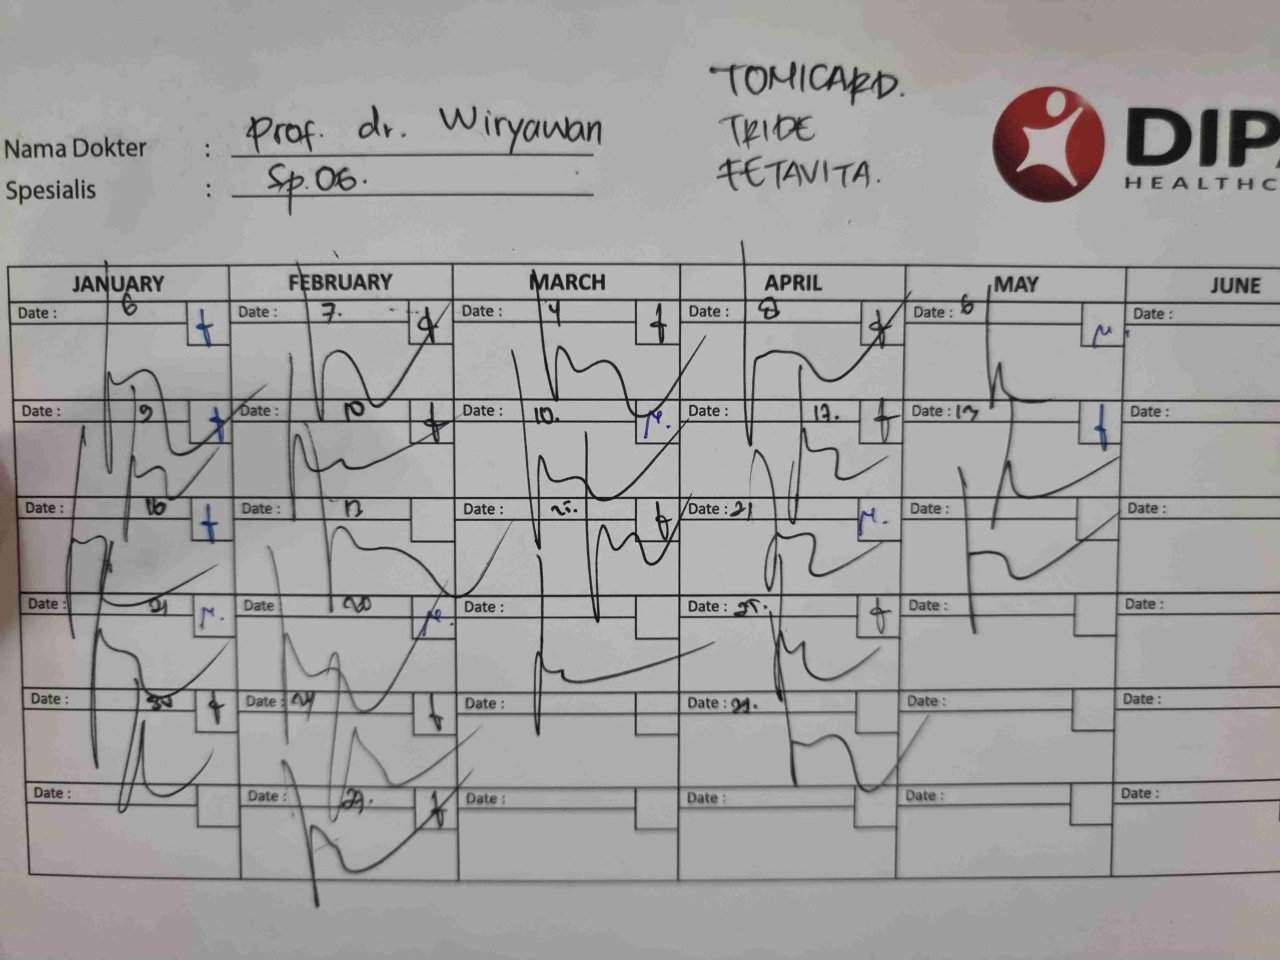 TOMICARD.
Nama Dokter : Prof. dr. Wiryawan
TRIDE
Spesialis : Sp.OG.
FETAVITA.
DIPA
HEALTHC
JANUARY FEBRUARY MARCH APRIL MAY JUNE
Date : 6 Date : 7. Date : 4 Date : 8 Date : 6 Date :
Date : 9 Date : 10 Date : 10. Date : 17. Date : 13 Date :
Date : 16 Date : 13 Date : 25. Date : 21 Date : Date :
Date : 21 Date 20 Date : Date : 25. Date : Date :
Date : 30 Date : 24 Date : Date : 29. Date : Date :
Date : Date : 29. Date : Date : Date : Date :